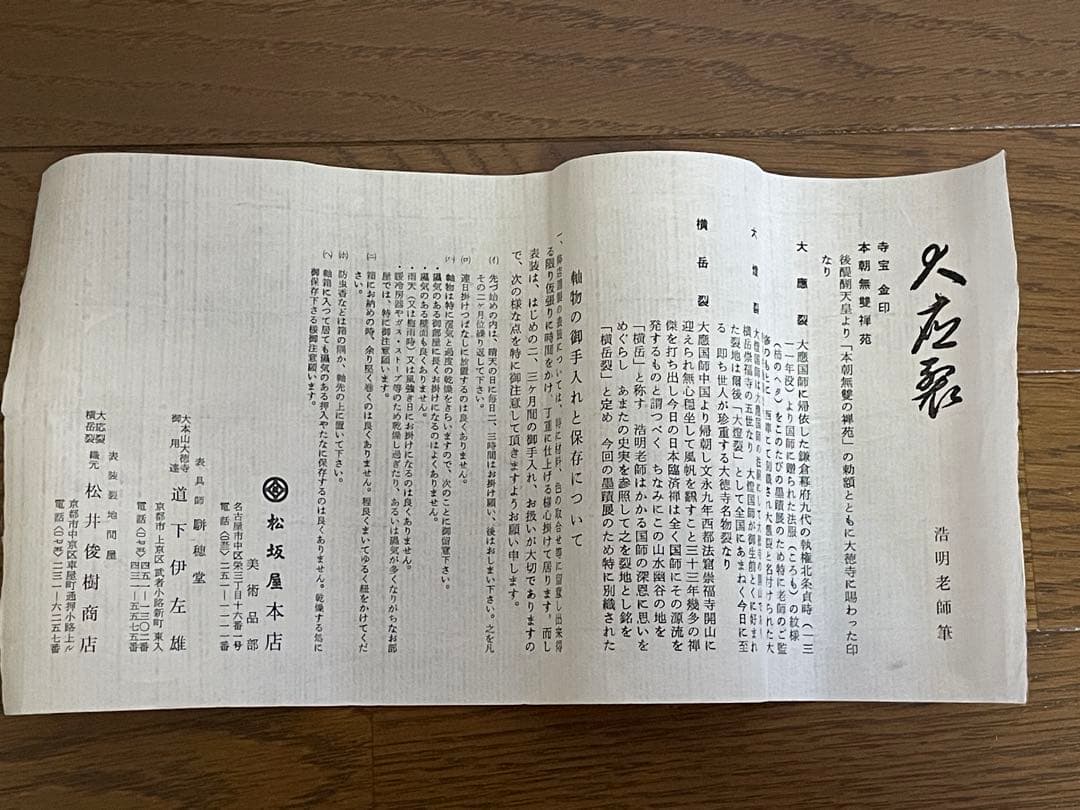 大應裂
浩明老師筆
寺宝金印
本朝無雙禅苑
後醍醐天皇より「本朝無雙の禅苑」の勅額とともに大徳寺に賜わった印
なり
大應裂
大應国師に帰依した鎌倉幕府九代の執権北条貞時（一三
一一年歿）より国師に贈られた法服（ころも）の紋様
（柿のヘタ）をこのたびの墨蹟展のため特に老師のご監
修のもとに、西陣にて別織され大應裂と名付けられた
大燈裂
横岳崇福寺の五世なり 大燈国師が御生前とくに好まれ
た裂地は爾後「大燈裂」として全国にあまねく今日に至
る 即ち世人が珍重する大徳寺名物裂なり
横岳裂
大應国師中国より帰朝し文永九年西都法窟崇福寺開山に
迎えられ無心穏坐して風帆を観すこと三十三年幾多の禅
傑を打ち出し今日の日本臨済禅は全く国師にその源流を
発するものと謂つべく ちなみにこの山水幽谷の地を
「横岳」と称す 浩明老師はかかる国師の深恩に思いを
めぐらし あまたの史実を参照して之を裂地とし銘を
「横岳裂」と定め 今回の墨蹟展のため特に別織された
軸物の御手入れと保存について
る限り仮張りに時間をかけ、丁重に仕上げる様心掛けて居ります。而し
表装は、はじめの二、三ケ月間の御手入れ、お扱いが大切でありますの
で、次の様な点を特に御注意して頂きますようお願い申します。
(イ) 先づ始めの内は、晴天の日に毎日二、三時間はお掛け願い、後はおしまい下さい。之を凡
その二ケ月位繰り返して下さい。
(ロ) 連日掛けつぱなしに放置するのは良くありません。
(ハ) 軸物は特に湿気と過度の乾燥をきらいますので、次のことに御留意下さい。
・湿気のある御部屋に長くお掛けになるのはよくありません。
・湿気のある壁面も良くありません。
・雨天（又は梅雨時）又は風強き日にお掛けになるのは良くありません。
・暖冷房器やガス・ストーブ等のため乾燥し過ぎたり、あるいは湿気が多くなりがちなお部
屋では、特に御注意願います。
(ニ) 箱にお納めの時、余り堅く巻くのは良くありません。程良くまいてゆるく紐をかけてくだ
さい。
(ホ) 防虫香などは箱の隅か、軸先の上に置いて下さい。
(ヘ) 軸箱に入つて居ても湿気のある押入やたなに保存するのは良くありません。乾燥する処に
御保存下さる様御注意願います。
松坂屋本店
美術品部
名古屋市中区栄三丁目十六番一号
電話（〇五二）二五一―一一一一番
表具師 聴穂堂
大本山大徳寺
御用達 道下伊左雄
京都市上京区武者小路新町東入
電話（〇七五）四五一―一三〇二番
四三一―五五七五番
表装裂地問屋
大応裂
横岳裂 織元 松井俊樹商店
京都市中京区車屋町通押小路上ル
電話（〇七五）二三一―六二五七番